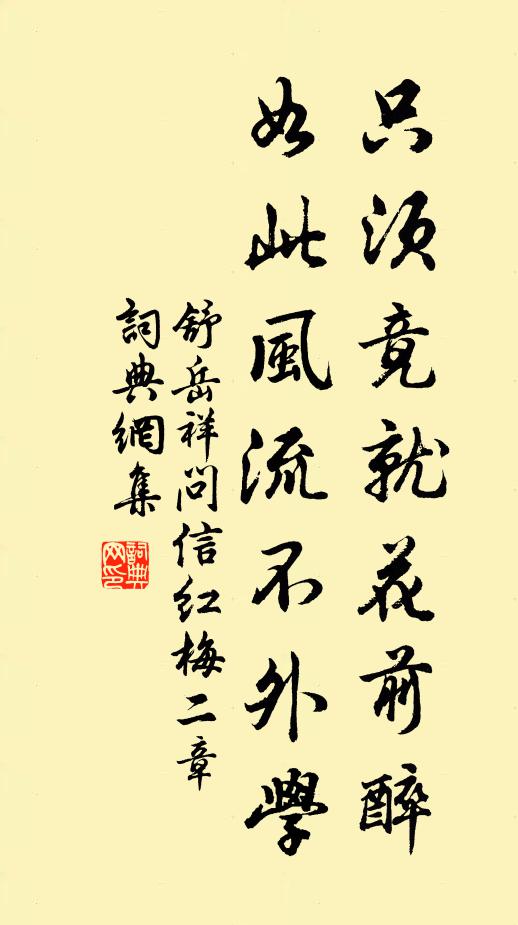 只須竟就花前醉
如此風流不外學
舒岳祥問信紅梅二章
詞典網集
詞典网印